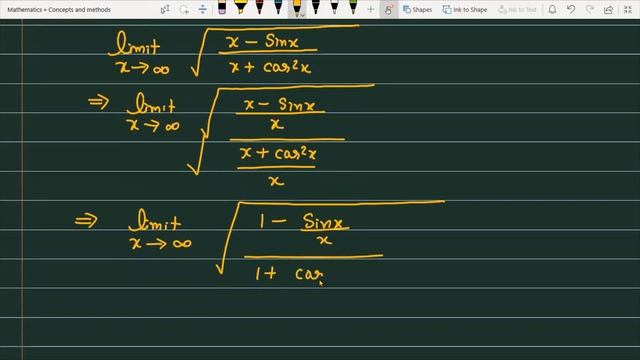 Mathematics + Concepts and methods
Shapes
Ink to Shape
Ink to Text
limit x→∞ √((x - Sinx)/(x + cos²x))
⇒ limit x→∞ √(((x - Sinx)/x)/((x + cos²x)/x))
⇒ limit x→∞ √((1 - Sinx/x)/(1 + cos